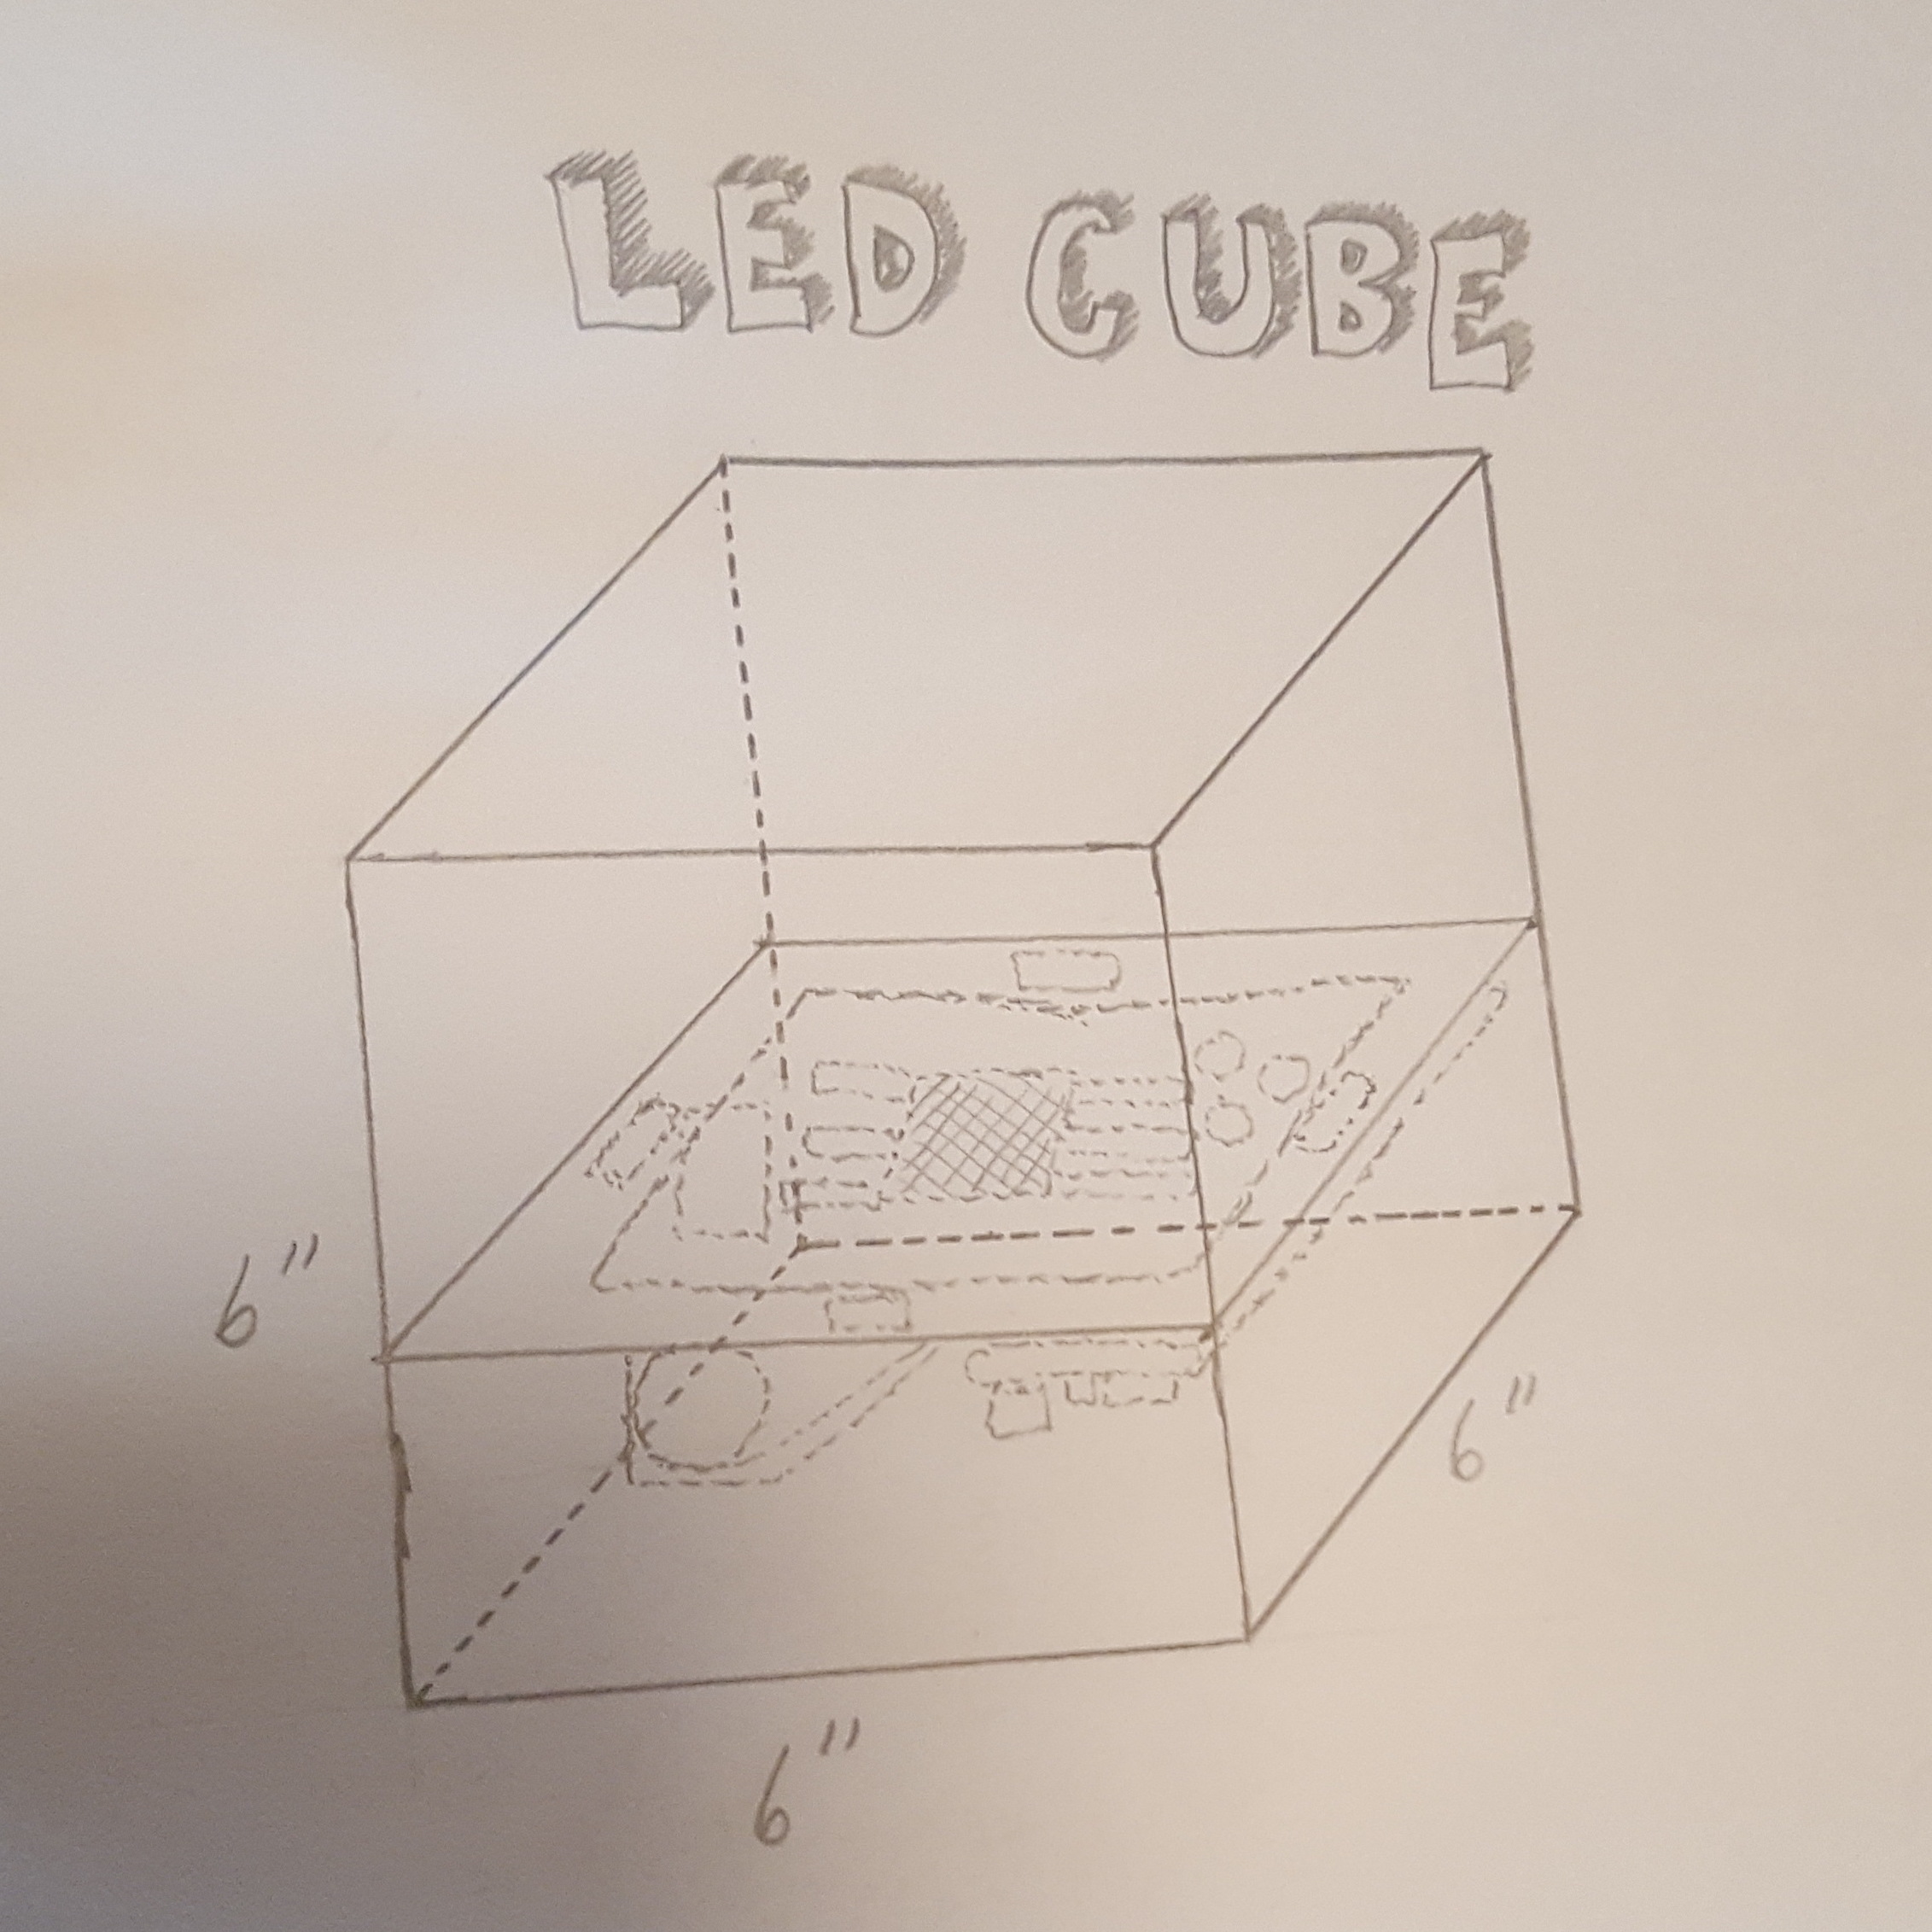 LED CUBE
6"
6"
6"